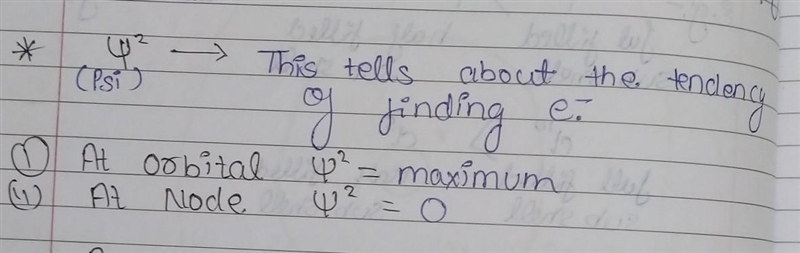 * ψ² → This tells about the tendency
(Psi) of finding e⁻
(i) At orbital ψ² = maximum
(ii) At Node ψ² = 0